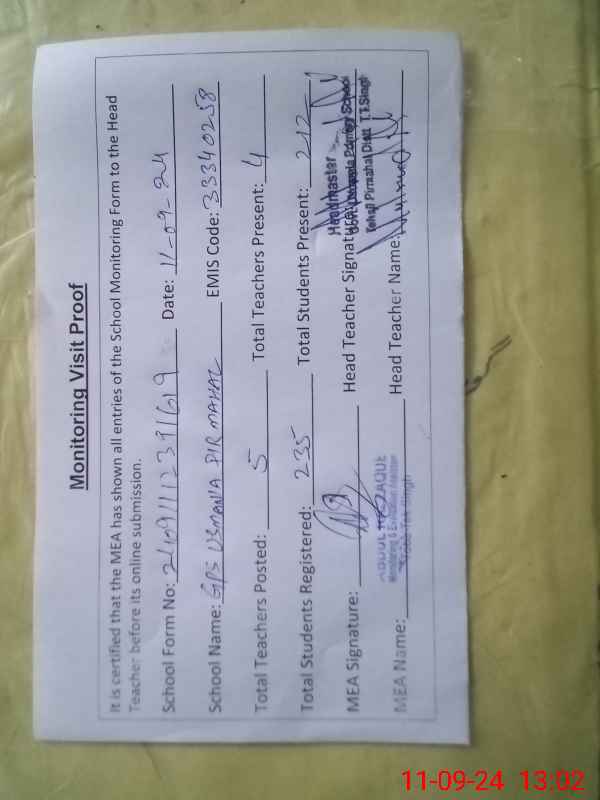 Monitoring Visit Proof
It is certified that the MEA has shown all entries of the School Monitoring Form to the Head
Teacher before its online submission.
School Form No: 24091112391619 Date: 11-09-24
School Name: GPS USMANIA PIR MAHAL EMIS Code: 33340258
Total Teachers Posted: 5 Total Teachers Present: 4
Total Students Registered: 235 Total Students Present: 212
MEA Signature: Head Teacher Signature:
Headmaster
Govt. Usmania Primary School
Tehsil Pirmahal Distt. T.T.Singh
ABDUL RAZZAQUE
Monitoring & Evaluation Assistant
Toba Tek Singh
MEA Name: Head Teacher Name:
11-09-24 13:02